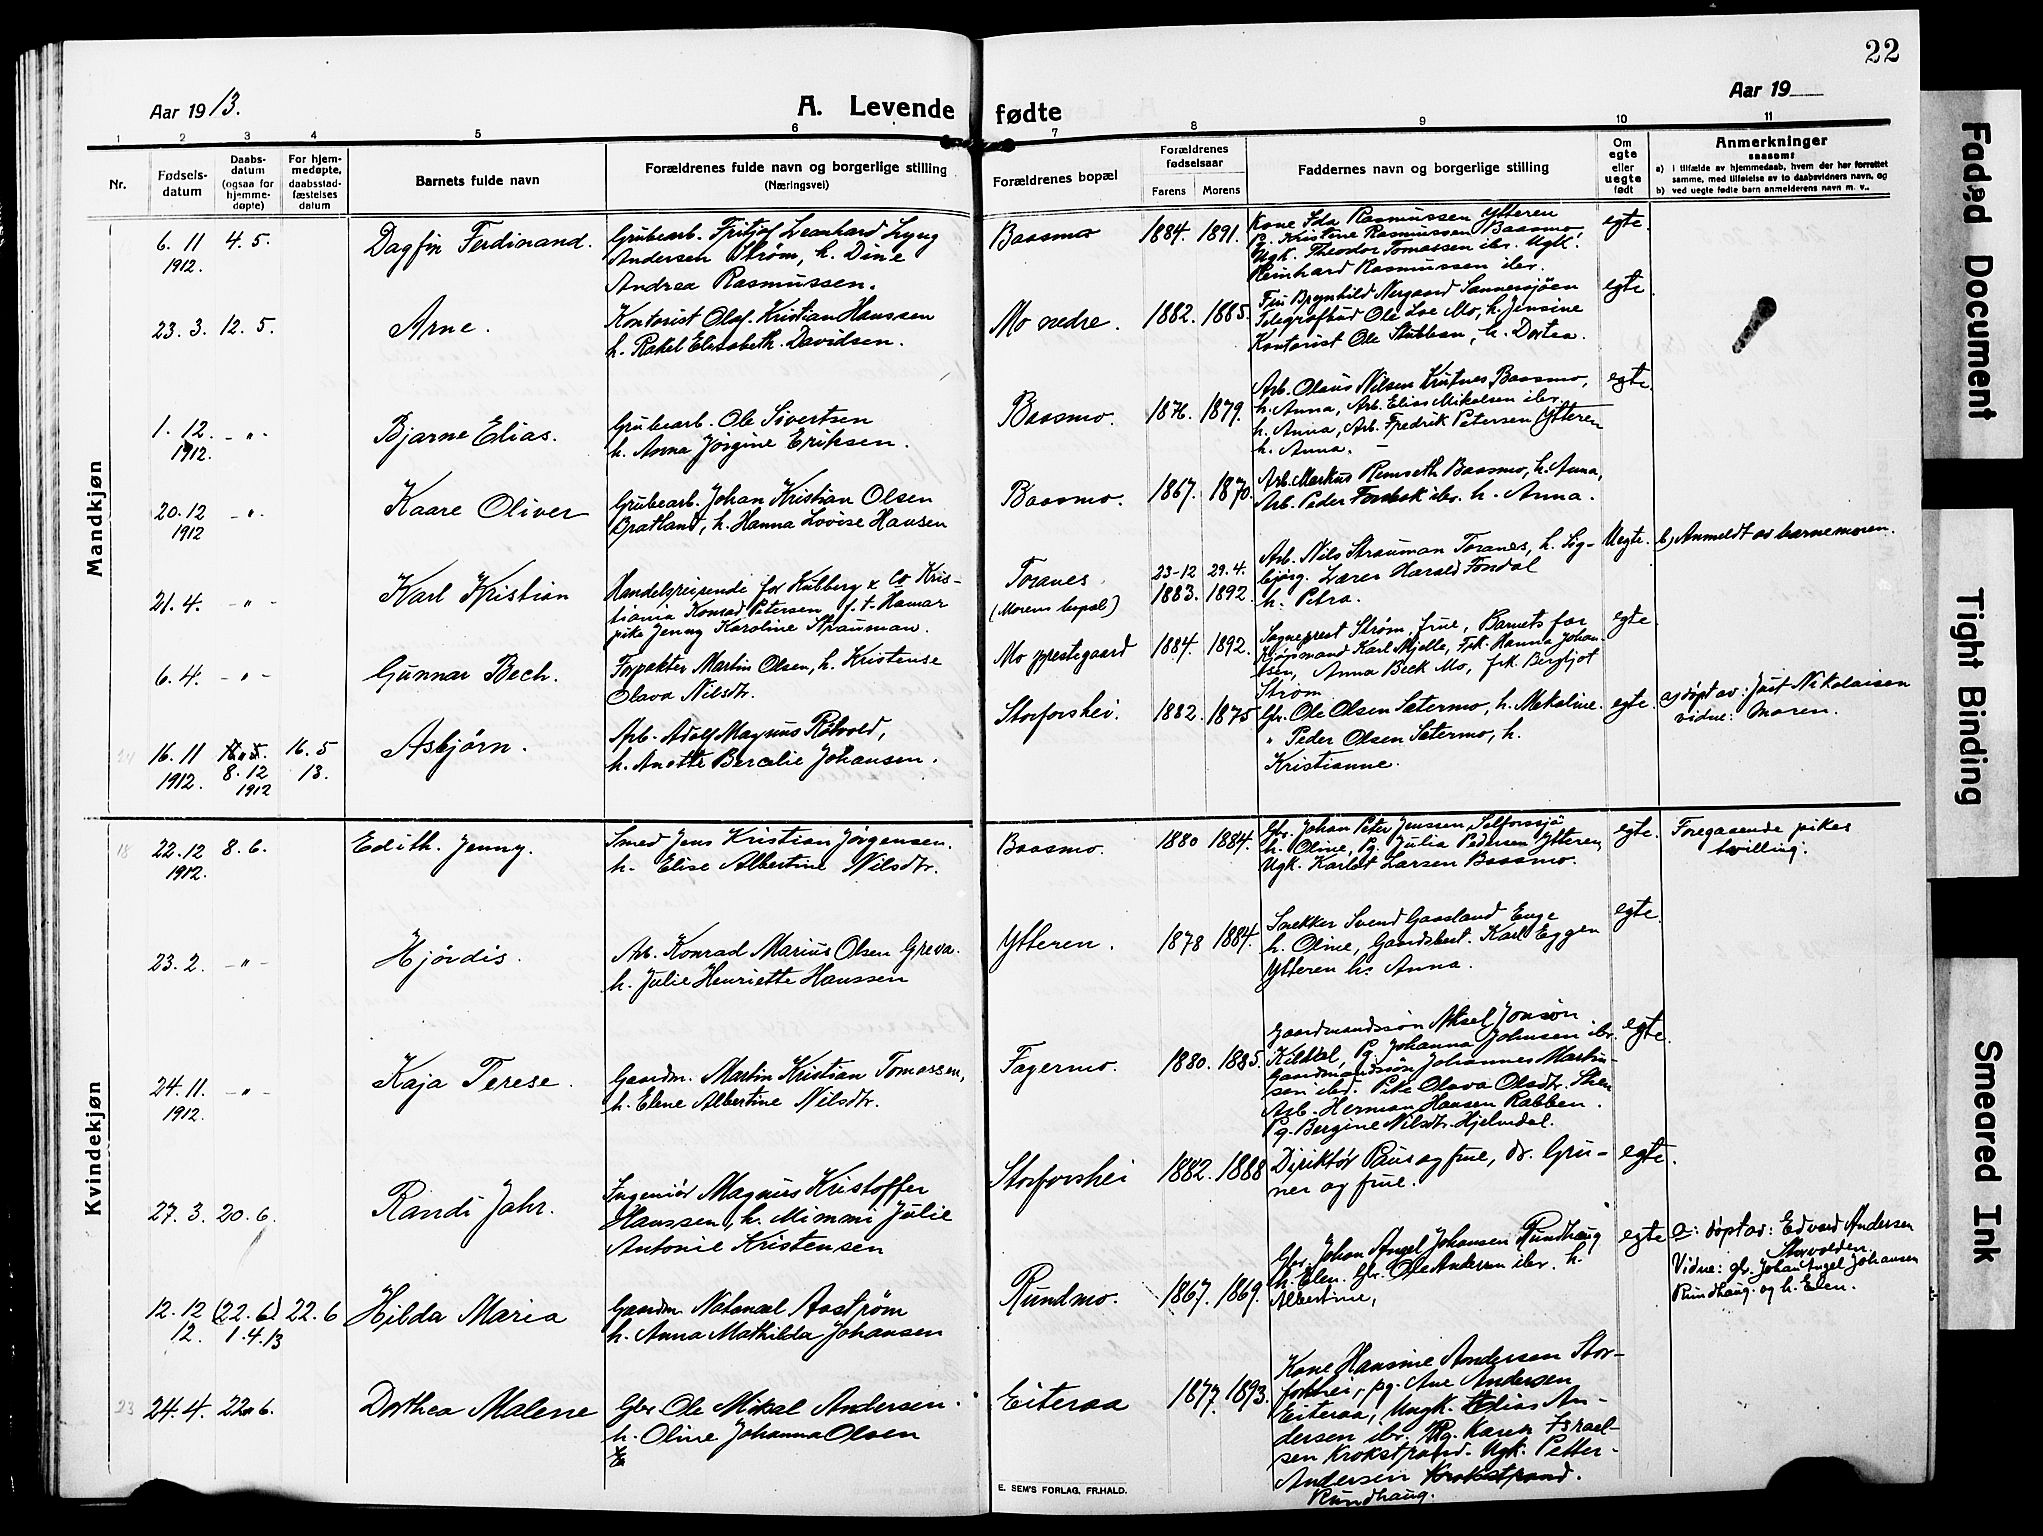 22
Aar 1913.
A. Levende fødte
Aar 19
1 2 3 4 5 6 7 8 9 10 11
Nr.
Fødsels-
datum
Daabs-
datum
(ogsaa for
hjemme-
døpte)
For hjem-
medøpte,
daabsstad-
fæstelses
datum
Barnets fulde navn
Forældrenes fulde navn og borgerlige stilling
(Næringsvei)
Forældrenes bopæl
Forældrenes
fødselsaar
Farens Morens
Faddernes navn og borgerlige stilling
Om
egte
eller
uegte
født
Anmerkninger
saasomt
a) i tilfælde av hjemmedaab, hvem der har forrettet
samme, med tilføielse av to daabsvidners navn, og
b) ved uegte fødte barn anmelderens navn m. v..
Mandkjøn
6. 11 4. 5.
1912.
Dagfin Ferdinand.
Grubearb. Fritjof Leonhard Lyng
Andersen Strøm, h. Dine
Andrea Rasmussen.
Baasmo 1884. 1891.
Kone Ida Rasmussen Ytteren
Pg. Kristine Rasmussen Baasmo,
Ugk. Theodor Tomassen ibr. Ugk.
Reinhard Rasmussen ibr.
egte.
23. 3. 12. 5.
Arne.
Kontorist Olaf Kristian Hanssen
h. Rakel Elisabeth Davidsen.
Mo nedre. 1882. 1885.
Fru Brynhild Nergaard Sannessjøen
Telegrafbud Ole Loe Mo, h. Jensine
Kontorist Ole Stubban, h. Dortea.
egte.
1. 12. -"-
1912.
Bjarne Elias.
Grubearb. Ole Sivertsen
h. Anna Jørgine Eriksen.
Baasmo. 1876. 1879.
Arb. Olaus Nilsen Krutnes Baasmo,
h. Anna, Arb. Elias Mikelsen ibr.
h. Anna, Arb. Fredrik Petersen Ytteren
h. Anna.
egte.
20. 12 -"-
1912
Kaare Oliver
Grubearb. Johan Kristian Olsen
Bratland, h. Hanna Lovise Hansen
Baasmo. 1867. 1870.
Arb. Markus Remseth Baasmo, h. Anna,
Arb. Peder Fombek ibr. h. Anna.
21. 4. -"-
Karl Kristian
Handelsreisende for Kubberg & Co Kris-
tiania Konrad Petersen f. t. Hamar
pike Jenny Karoline Strauman.
Toranes
(Morens bopæl)
23-12 29. 4.
1883. 1892.
Arb. Nils Strauman Toranes, h. Sig-
bjørg. Lærer Harald Fondal
h. Petra.
Uegte. b) Anmeldt av barnemoren.
6. 4. -"-
Gunnar Bech.
Forpakter Martin Olsen, h. Kristense
Olava Nilsdtr.
Mo prestegaard 1884. 1892.
Sogneprest Strøm, frue, Barnets far
Kjøpmand Karl Mjelle, Frk. Hanna Johan-
sen, Anna Beck Mo, frk. Bergljot
Strøm
egte.
24 16. 11 16. 5
1912. 8. 12 13.
1912
Asbjørn.
Arb. Adolf Magnus Røhvold,
h. Anette Bercelie Johansen.
Storforshei. 1882. 1875
Gbr. Ole Olsen Sætermo, h. Mekaline.
" Peder Olsen Sætermo, h.
Kristianne.
egte.
a) døpt av: Just Nikolaisen
vidne: Moren.
Kvindekjøn
18 22. 12 8. 6.
1912.
Edith Jenny.
Smed Jens Kristian Jørgensen.
h. Elise Albertine Nilsdtr.
Baasmo. 1880 1884.
Gbr. Johan Peter Jenssen, Selforssjø
h. Oline, Pg. Julia Pedersen Ytteren,
Ugk. Karlot Larsen Baasmo.
egte.
Foregaaende pikes
tvilling.
23. 2. -"-
Hjørdis.
Arb. Konrad Marius Olsen Greva.
h. Julie Henriette Hanssen
Ytteren. 1878 1884.
Snekker Svend Gaasland Enge
h. Oline, Gaardsbest. Karl Eggen
Ytteren h. Anna.
egte.
24. 11. -"-
1912.
Kaja Terese.
Gaardm. Martin Kristian Tomassen,
h. Elene Albertine Nilsdtr.
Fagermo. 1880. 1885.
Gaardmandssøn Aksel Jonsøn
Kildal, Pg. Johanna Johnsen ibr.
Gaardmandssøn Johannes Martin-
sen ibd. Pike Olava Olsdtr. Sten
Arb. Herman Hansen Rabben.
Pg. Bergine Nilsdtr. Hjelmdal.
egte.
27. 3. 20. 6.
Randi Jahr.
Ingeniør Magnus Kristoffer
Hanssen, h. Mimmi Julie
Antonie Kristensen
Storforshei 1882. 1888
Direktør Paus og frue, dr. Gru-
ner og frue.
egte.
12. 12 (22. 6) 22. 6
12. 1. 4. 13
Hilda Maria
Gaardm. Natanael Aastrøm
h. Anna Mathilda Johansen
Rundmo. 1867. 1869.
Gbr. Johan Angel Johansen Rundhaug
h. Elen. Gbr. Ole Andersen ibr. h.
Albertine,
egte
a: døpt av: Edvard Andersen
Storvolden.
Vidne: gbr. Johan Angel Johansen
Rundhaug og h. Elen.
23 24. 4. 22. 6.
Dorthea Malene
Gbr. Ole Mikal Andersen.
h. Oline Johanna Olsen
Eiteraa 1877. 1893.
Kone Hansine Andersen Stor-
forshei, pg. Ane Andersen
Eiteraa, Ungk. Elias An-
dersen ibr. Pg. Karen Israel-
sen Krokstrand. Ugk. Petter
Andersen Krokstrand.
Rundhaug.
E. SEM'S FORLAG, FR.HALD.
Faded Document
Tight Binding
Smeared Ink